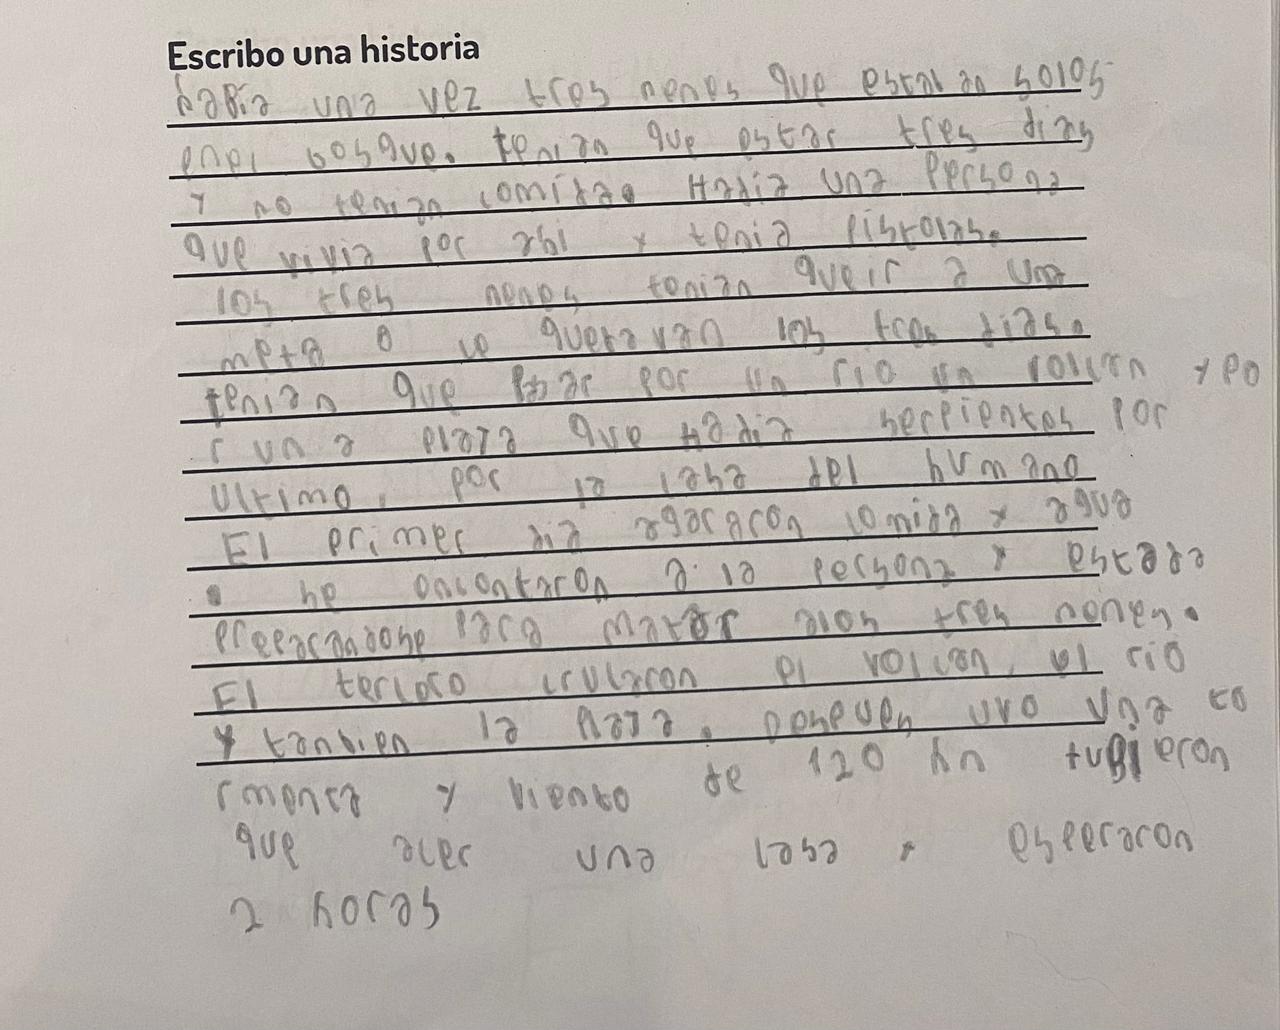 Escribo una historia
habia una vez tres nenes que estaban solos
enel bosque. tenian que estar tres dias
y no tenian comida. Habia una Persona
que vivia por ahi y tenia pistolas.
los tres nenes tenian queir a una
meta o se quedavan los tres dias.
tenian que pasar por un rio un volcan y po
r una plaza que Habia serpientes por
ultimo, por la casa del humano
El primer dia agararon comida y agua
. se encontaron a la persona y estaba
preparandose para matar alos tres nenes.
El tercero crusaron el volcan, el rio
y tanbien la plaza. Despues uvo una to
rmenta y viento de 120 kn tubieron
que acer una casa y esperaron
2 horas